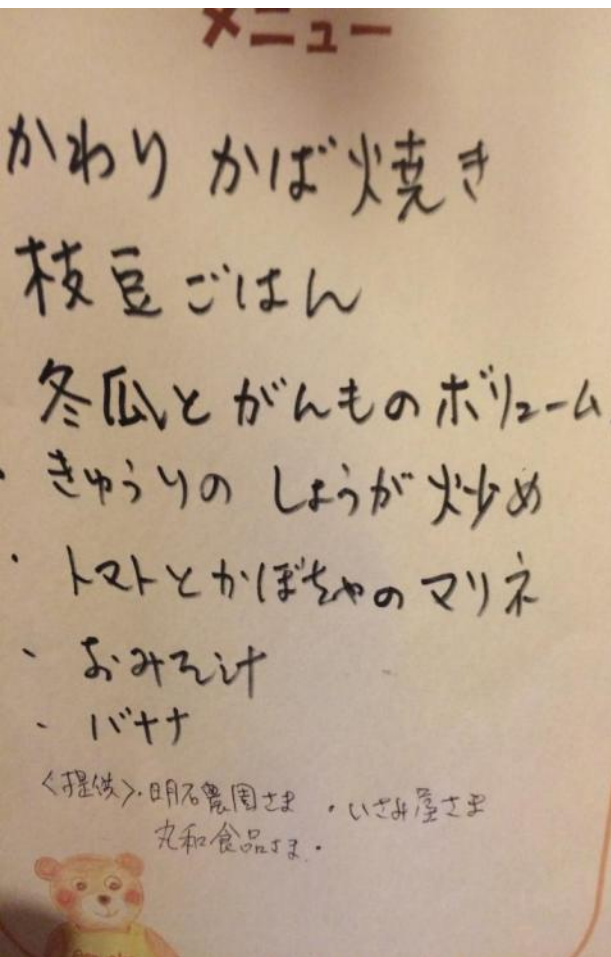 メニュー
かわり かば焼き
枝豆ごはん
冬瓜とがんものボリューム
・きゅうりの しょうが炒め
・トマトとかぼちゃのマリネ
・おみそ汁
・バナナ
<提供>・明石農園さま ・いさみ屋さま
丸和食品さま・